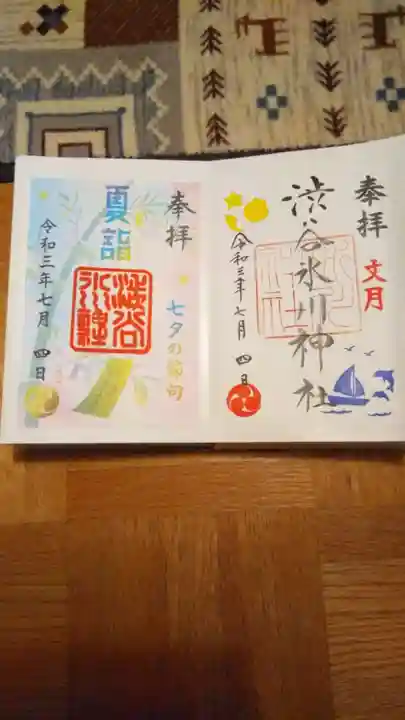 奉拝
文月
渋谷氷川神社
令和三年七月四日
奉拝
夏詣
七夕の節句
令和三年七月四日